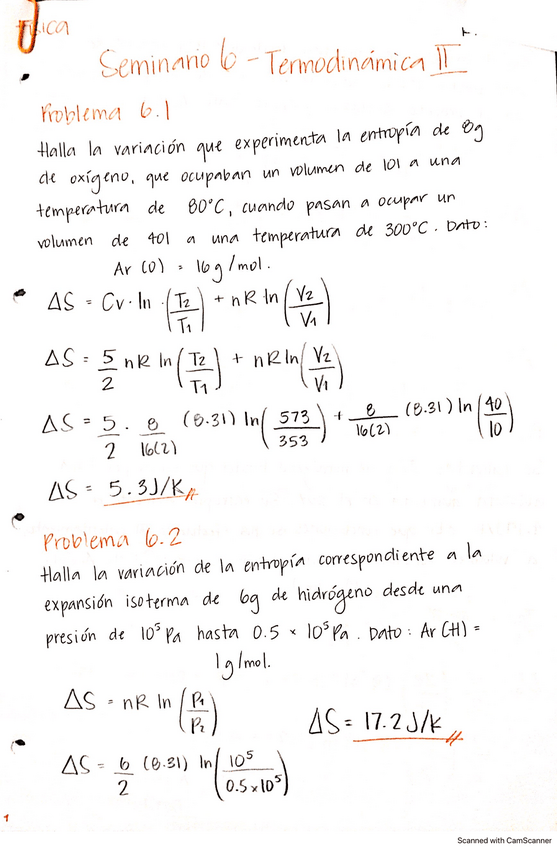 Física
Seminario 6 - Termodinámica II
Problema 6.1
Halla la variación que experimenta la entropía de 8g
de oxígeno, que ocupaban un volumen de 10l a una
temperatura de 80°C, cuando pasan a ocupar un
volumen de 40l a una temperatura de 300°C. Dato:
Ar (O) = 16g/mol.
ΔS = Cv · ln · (T2/T1) + nR ln (V2/V1)
ΔS = 5/2 nR ln (T2/T1) + nR ln (V2/V1)
ΔS = 5/2 · 8/16(2) (8.31) ln (573/353) + 8/16(2) (8.31) ln (40/10)
ΔS = 5.3J/K
Problema 6.2
Halla la variación de la entropía correspondiente a la
expansión isoterma de 6g de hidrógeno desde una
presión de 10⁵ Pa hasta 0.5 × 10⁵ Pa. Dato: Ar (H) =
1g/mol.
ΔS = nR ln (P1/P2)
ΔS = 17.2 J/K
ΔS = 6/2 (8.31) ln (10⁵/0.5×10⁵)
1
Scanned with CamScanner